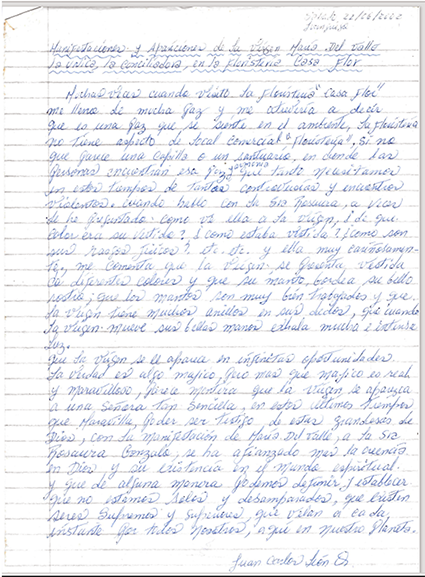 22/06/2000
Manifestaciones y Apariciones de la Virgen María del Valle
la Unica, la Conciliadora, en la Floristería Casa Flor
Muchas veces cuando visito la Floristería "Casa Flor"
me lleno de mucha Paz y me atrevería a decir
que es una Paz que se siente en el ambiente, la Floristería
no tiene aspecto de local Comercial "Floristería", si no
que parece una capilla o un santuario, en donde las
Personas encuentran esa Paz que tanto necesitamos
en estos tiempos de tantas controversias y encuestros
violentos. Cuando hablo con la Sra Rosaura, a veces
le he preguntado como ve ella a la Virgen, ¿de que
color era su vestido? ¿como estaba vestida? ¿como son
sus rasgos físicos? etc. etc. y ella muy cariñosamen-
te, me comenta que la Virgen se presenta vestida
de diferentes colores y que su manto bordea su bello
rostro; que los mantos son muy bien trabajados y que
la Virgen tiene muchos anillos en sus dedos, que cuando
la Virgen mueve sus bellas manos exhala mucha e intensa
luz.
Que la Virgen se le aparece en infinitas oportunidades
La verdad es algo majico, pero mas que majico es real
y Maravilloso, parece mentira que la Virgen se aparezca
a una Señora tan Sencilla, en estos ultimos tiempos
que Maravilla, poder ser testigo de estas grandezas de
Dios, con la Manifestación de María del Valle, a la Sra
Rosaura Gonzalo, se ha afianzado mas la creencia
en Dios, y su existencia en el mundo espiritual.
y que de alguna manera podemos definir y establecer
que no estamos solos y desamparados, que existen
seres supremos y superiores que velan a cada
instante por todos nosotros, aquí en nuestro Planeta.
Juan Carlos León